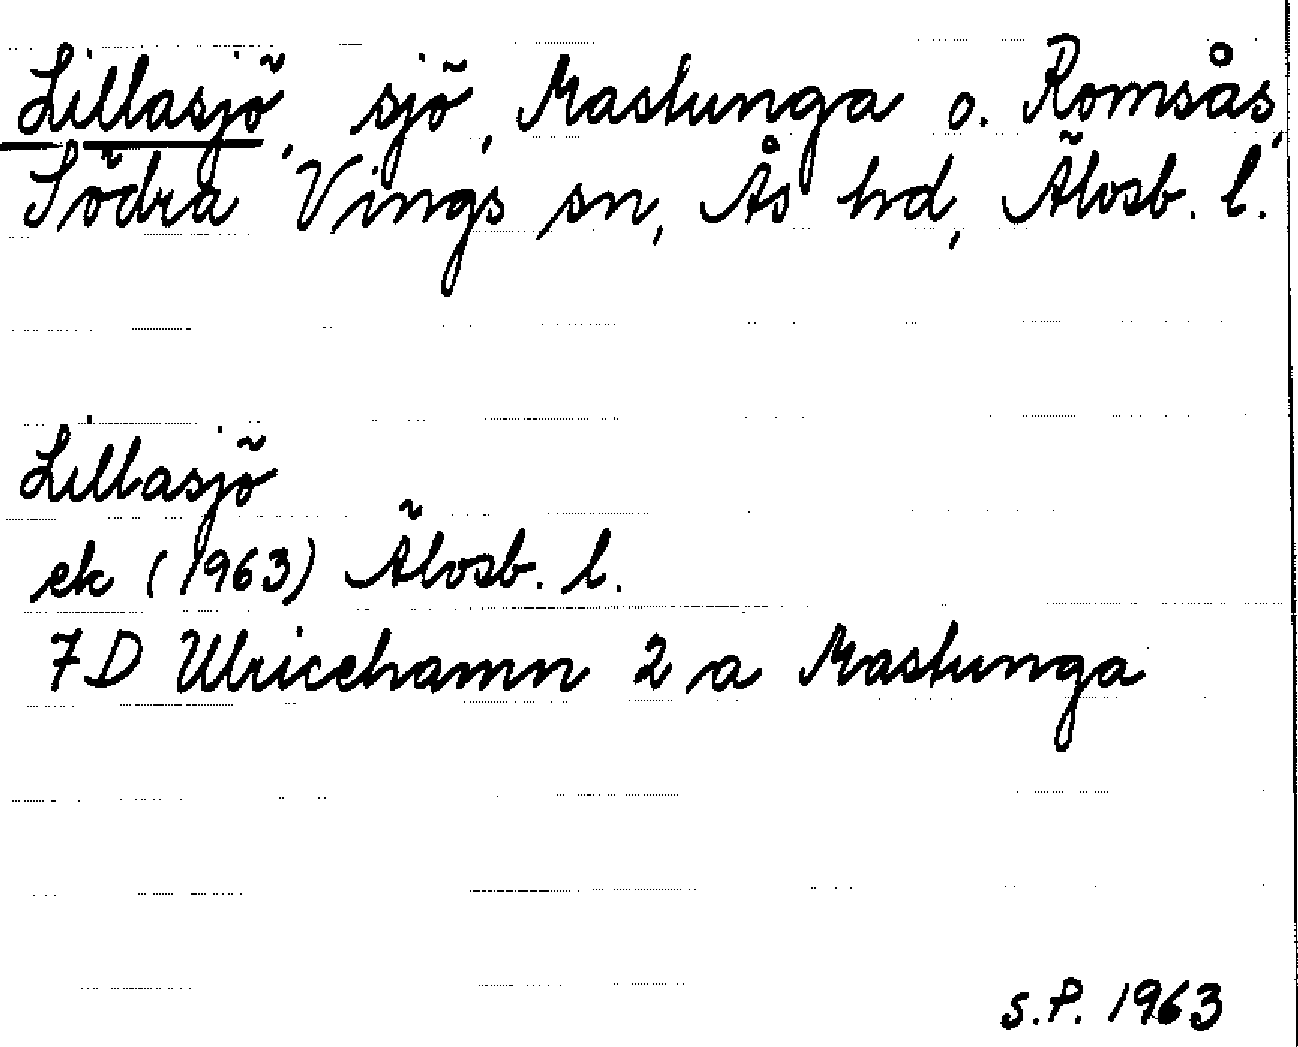 Lillasjö, sjö, Mastunga o. Romsås,
Södra Vings sn, Ås hd, Älvsb. l.
Lillasjö
ek (1963) Älvsb. l.
7D Ulricehamn 2 a Mastunga
S.P. 1963